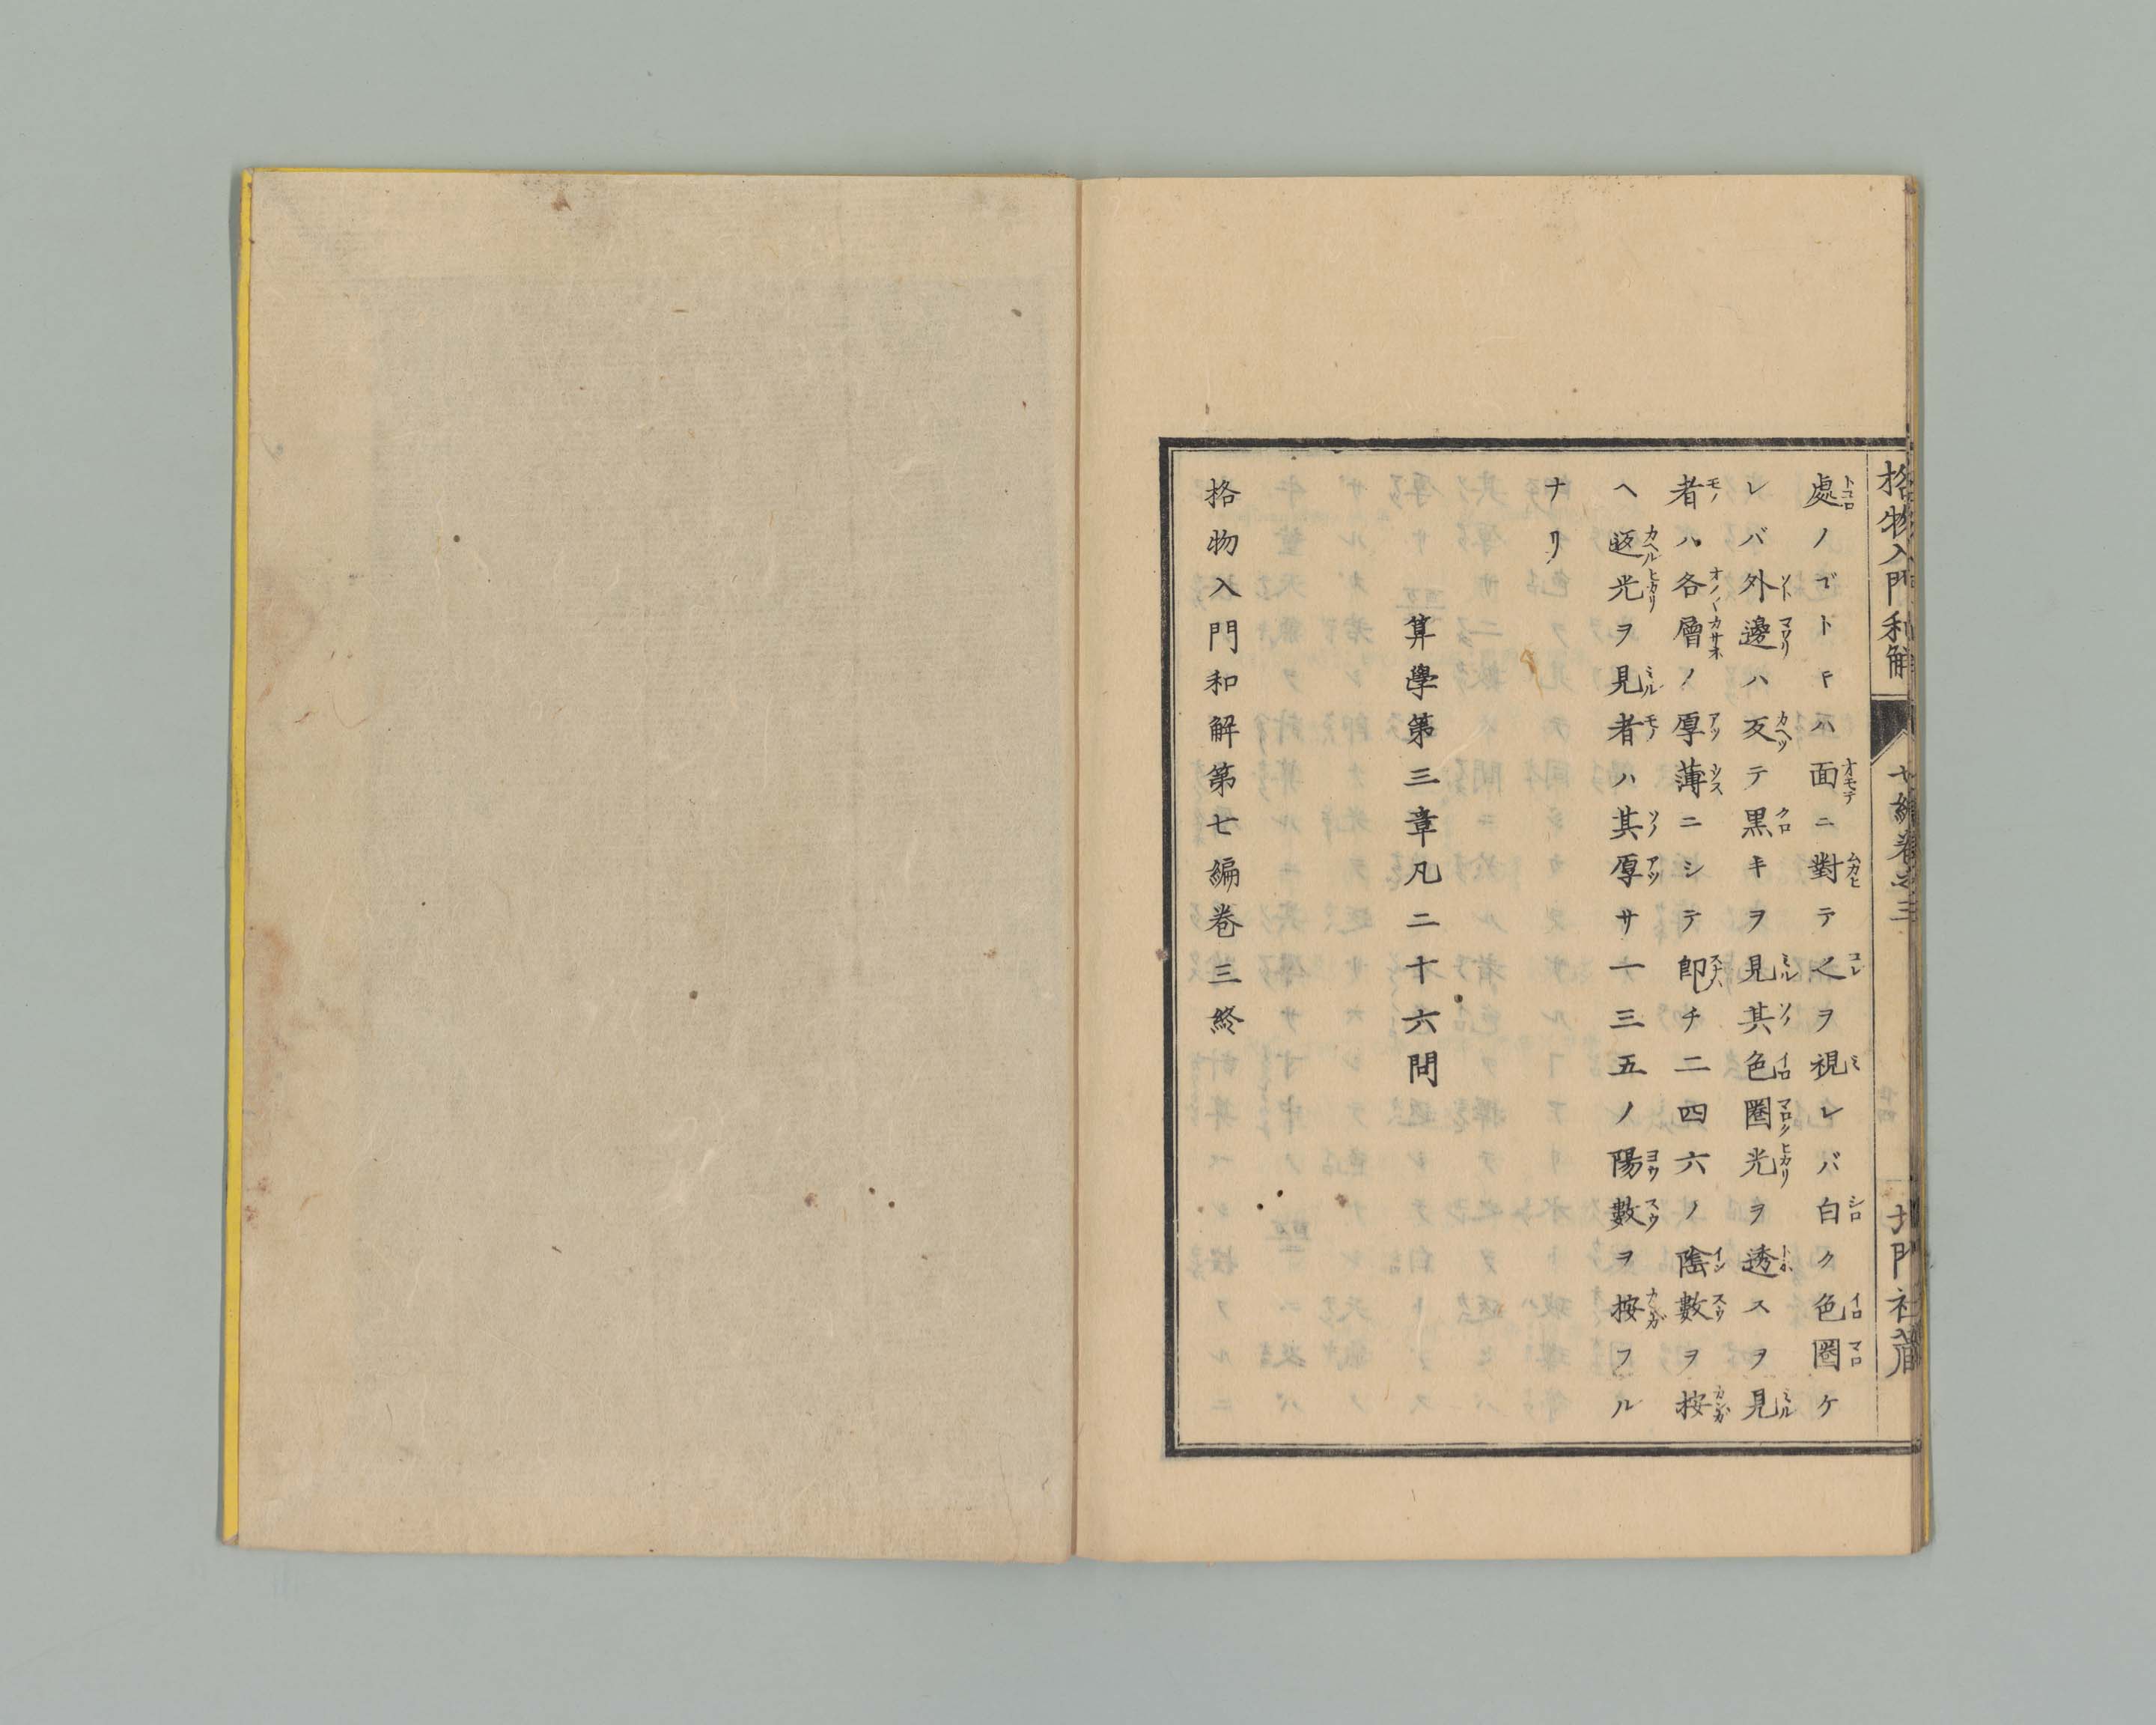 格物入門和解
七編卷之三
北門社藏
處ノゴトキハ面ニ對テ之ヲ視レバ白ク色圏ケ
レバ外邊ハ反テ黒キヲ見其色圏光ヲ透スヲ見
者ハ各層ノ厚薄ニシテ即チ二四六ノ陰數ヲ按
ヘ返光ヲ見者ハ其厚サ一三五ノ陽數ヲ按フル
ナリ
算學第三章凡二十六問
格物入門和解第七編卷三終